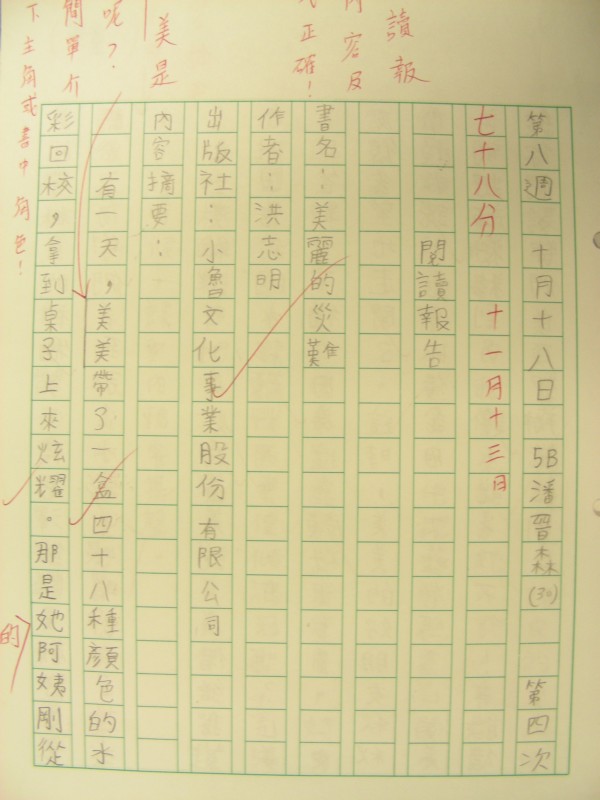 第八週 十月十八日 5B 潘晉森(30) 第四次
七十八分 十一月十三日
閱讀報告
書名：美麗的災難
作者：洪志明
出版社：小魯文化事業股份有限公司
內容摘要：
有一天，美美帶了一盒四十八種顏色的水
彩回校，拿到桌子上來炫耀。那是她阿姨剛從
讀報
內容及
正確！
美是
呢？
簡單介
下主角或書中角色！
的